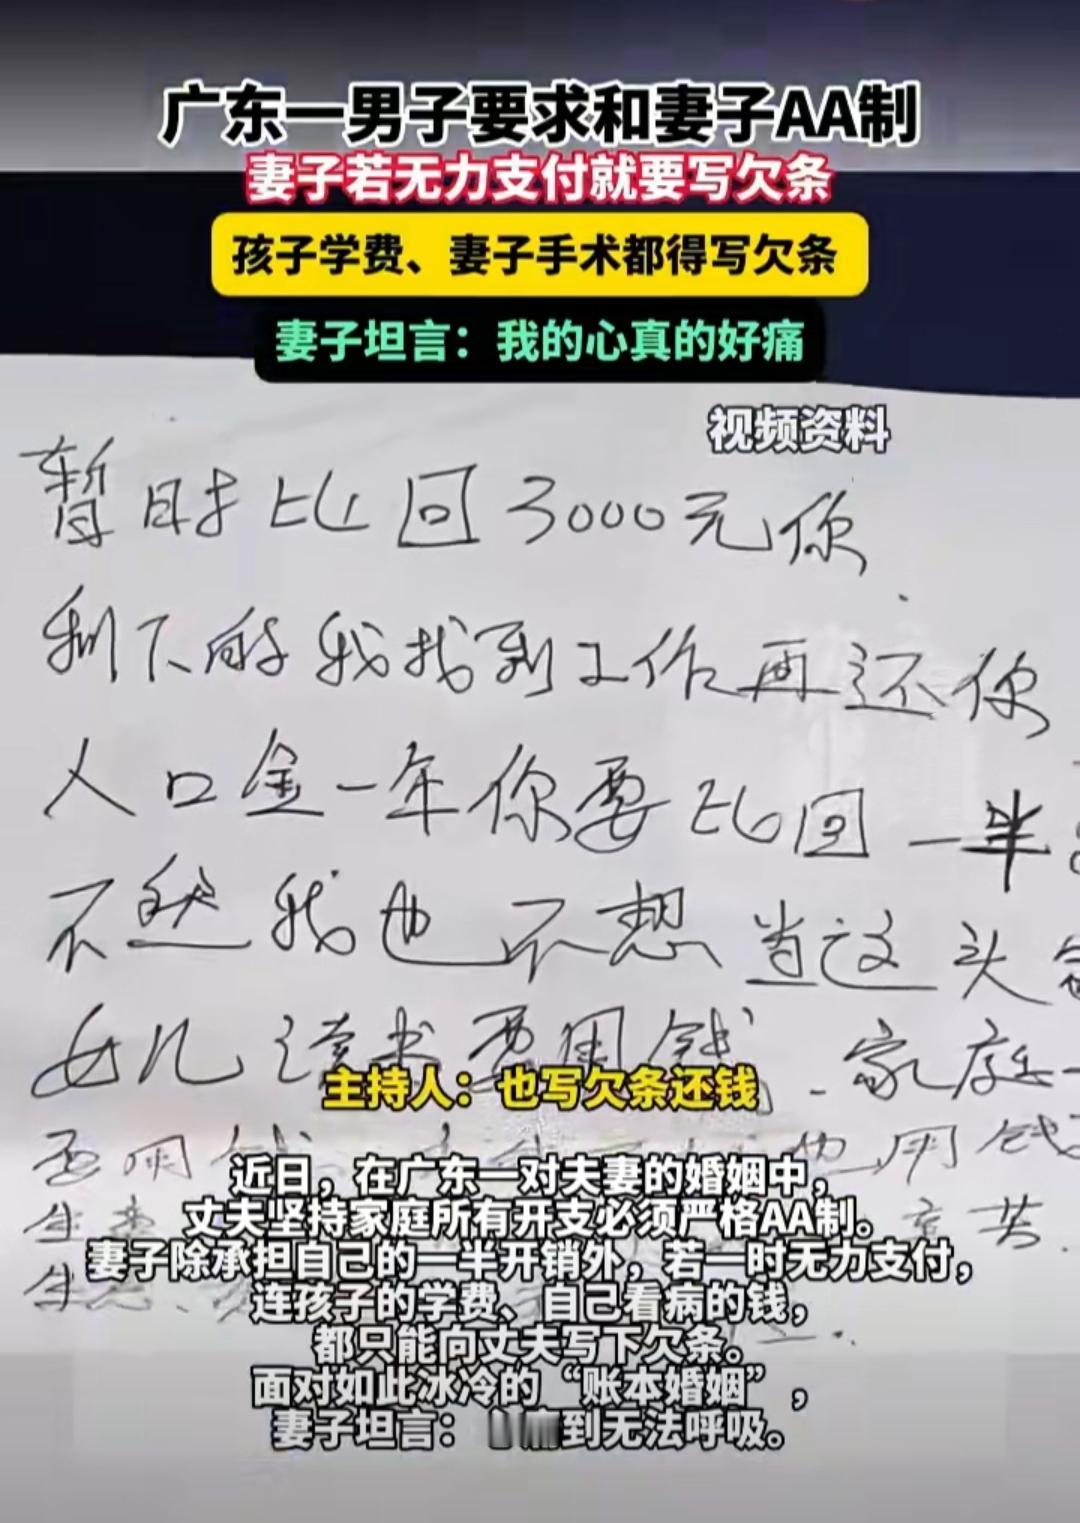 广东一男子要求和妻子AA制
妻子若无力支付就要写欠条
孩子学费、妻子手术都得写欠条
妻子坦言：我的心真的好痛
视频资料
暂时比回3000元你
剩下的我找到工作再还你
人口金一年你要比回一半
不然我也不想当这头
女儿读书要用钱.家庭
主持人：也写欠条还钱
要用钱 也用钱
近日，在广东一对夫妻的婚姻中，
丈夫坚持家庭所有开支必须严格AA制。
妻子除承担自己的一半开销外，若一时无力支付，
连孩子的学费、自己看病的钱，
都只能向丈夫写下欠条。
面对如此冰冷的“账本婚姻”，
妻子坦言： 到无法呼吸。